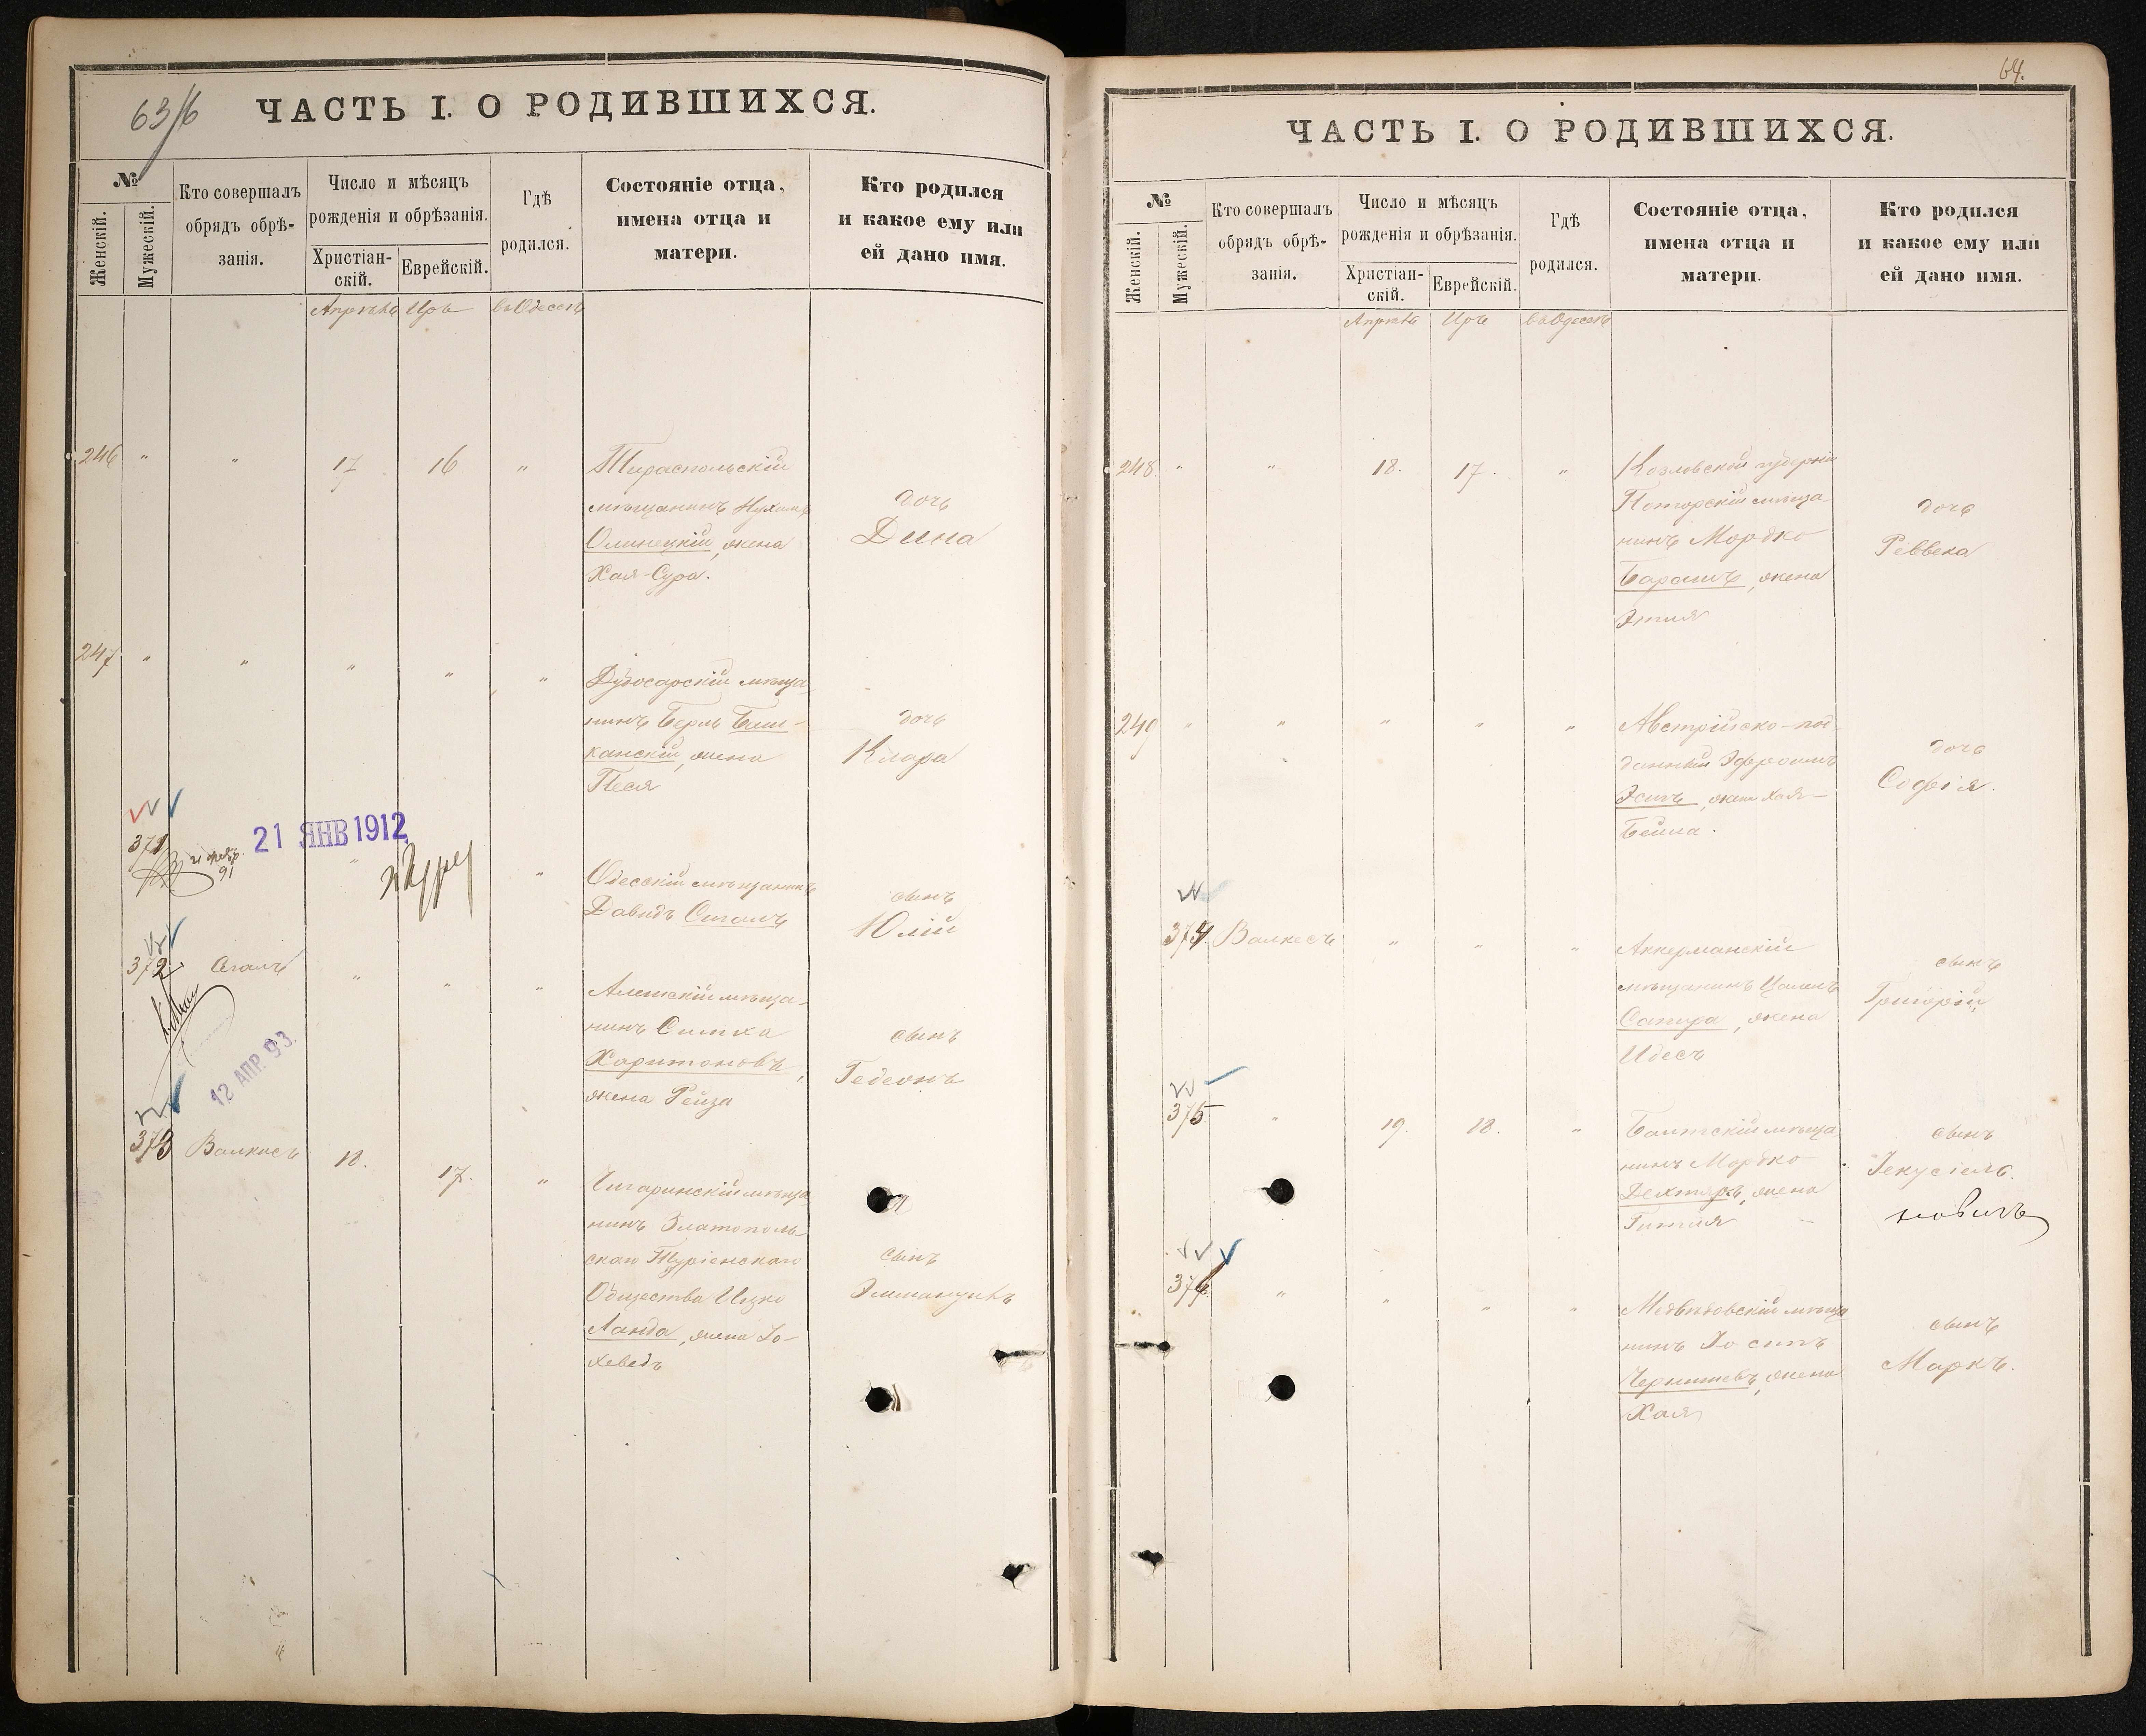 63/6
ЧАСТЬ I. О РОДИВШИХСЯ.
№
Женскій.
Мужескій.
Кто совершалъ
обрядъ обрѣ-
занія.
Число и мѣсяцъ
рожденія и обрѣзанія.
Христіан-
скій.
Еврейскій.
Гдѣ
родился.
Состояніе отца,
имена отца и
матери.
Кто родился
и какое ему или
ей дано имя.
Апрѣль Іюръ въ Одессѣ
246 " " 17 16 "
Тираспольскій
мѣщанинъ Нухимъ
Олинецкій, жена
Хая-Сура.
дочь
Дина
247 " " " " "
Дубосарскій мѣща-
нинъ Берль Баш-
канскій, жена
Песя
дочь
Клара
371
91
21 ЯНВ 1912
Одесскій мѣщанинъ
Давидъ Сигалъ
сынъ
Юлій
372 Сигалъ " " "
Алешскій мѣща-
нинъ Симха
Харитоновъ,
жена Рейза
сынъ
Гедеонъ
12 АПР. 93.
373 Валкисъ 18. 17. "
Чигиринскій мѣща
нинъ Златополь-
скаго
Общества Ицко
Ланда, жена Іо-
хеведъ
сынъ
Эммануилъ
64.
ЧАСТЬ I. О РОДИВШИХСЯ.
№
Женскій.
Мужескій.
Кто совершалъ
обрядъ обрѣ-
занія.
Число и мѣсяцъ
рожденія и обрѣзанія.
Христіан-
скій.
Еврейскій.
Гдѣ
родился.
Состояніе отца,
имена отца и
матери.
Кто родился
и какое ему или
ей дано имя.
Апрѣль Іюръ въ Одессѣ
248. " " 18. 17. "
губерніи
мѣща-
нинъ Мордко
Барашъ, жена
Этля
дочь
Реввека
249 " " " " "
Австрійско-под-
данный Эфроимъ
жена Хая-
Бейла.
дочь
Софія.
374. Валкесъ " " "
Аккерманскій
мѣщанинъ
Сапира, жена
Идесъ
сынъ
Григорій
375 " 19. 18. "
Балтскій мѣща
нинъ Мордко
Дехтяръ, жена
Гитля
сынъ
Іекусіель.
376. " " " "
Медвѣдовскій мѣща
нинъ Іосипъ
жена
Хая
сынъ
Маркъ.